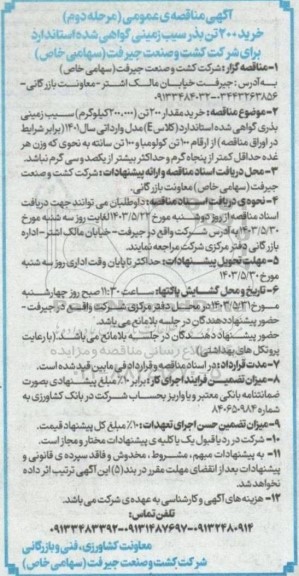 آگهی مناقصه ی عمومی (مرحله دوم)
خرید ۲۰۰ تن بذر سیب زمینی گواهی شده استاندارد
برای شرکت کشت و صنعت جیرفت (سهامی خاص)
۱-مناقصه گزار: شرکت کشت و صنعت جیرفت (سهامی خاص)
به آدرس: جیرفت خیابان مالک اشتر -معاونت بازرگانی-
۰۹۱۳۳۴۸۴۰۳۲-۰۳۴۴۳۲۶۳۸۵۶
۲-موضوع مناقصه: خرید مقدار ۲۰۰ تن (۲۰۰،۰۰۰کیلوگرم) سیب زمینی
بذری گواهی شده استاندارد (کلاس E) مدل وارداتی سال ۱۴۰۱ (برابر شرایط
در اوراق مناقصه) از ارقام ۱۰۰ تن کولومبا و ۱۰۰ تن سانته به نحوی که وزن هر
غده حداقل کمتر از پنجاه گرم و حداکثر بیشتر از یکصد و سی گرم نباشد.
۳-محل دریافت اسناد مناقصه و ارائه پیشنهادات: شرکت کشت و صنعت
جیرفت (سهامی خاص) معاونت بازرگانی.
۴-نحوه ی دریافت اسناد مناقصه: داوطلبان می توانند جهت دریافت
اسناد مناقصه از روز دوشنبه مورخ ۱۴۰۳/۵/۲۲ لغایت روز سه شنبه مورخ
۱۴۰۳/۵/۳۰ به آدرس شرکت واقع در جیرفت- خیابان مالک اشتر- اداره
بازرگانی دفتر مرکزی شرکت مراجعه نمایند.
۵-مهلت تحویل پیشنهادات: حداکثر تا پایان وقت اداری روز سه شنبه
مورخ ۱۴۰۳/۵/۳۰
۶-تاریخ و محل گشایش پاکتها: ساعت ۱۱:۳۰ صبح روز چهارشنبه
مورخ ۱۴۰۳/۵/۳۱ در محل دفتر مرکزی شرکت واقع در جیرفت-
حضور پیشنهاددهندگان در جلسه بلامانع می باشد.
حضور پیشنهاد دهندگان در جلسه بلامانع می باشد. (با رعایت
پروتکل های بهداشتی)
۷-مدت قرارداد: در اسناد مناقصه و قرارداد فی مابین قید شده است.
۸-میزان تضمین فرایند اجرای کار: برابر ۱۰٪ مبلغ پیشنهادی بصورت
ضمانتنامه بانکی معتبر و یا واریز بحساب شرکت در بانک کشاورزی به
شماره ۸۴۰۶۵۰۹۸۴
۹-میزان تضمین حسن اجرای تعهدات: ۱۰٪ مبلغ کل پیشنهاد قیمت.
۱۰- شرکت در رد یا قبول یک یا کلیه ی پیشنهادات مختار و مجاز است.
۱۱- به پیشنهادات مبهم، مشروط، مخدوش و فاقد سپرده ی قانونی و
پیشنهادات بعد از انقضای مهلت مقرر در بند (۵) این آگهی ترتیب اثر داده
نخواهد شد.
۱۲- هزینه های آگهی و کارشناسی به عهده ی شرکت می باشد.
تلفن تماس:
۰۹۱۳۳۴۸۳۳۹۲-۰۹۱۳۱۴۸۷۶۹۷-۰۹۱۳۲۴۸۰۹۱۴
معاونت کشاورزی، فنی و بازرگانی
شرکت کشت و صنعت جیرفت (سهامی خاص)